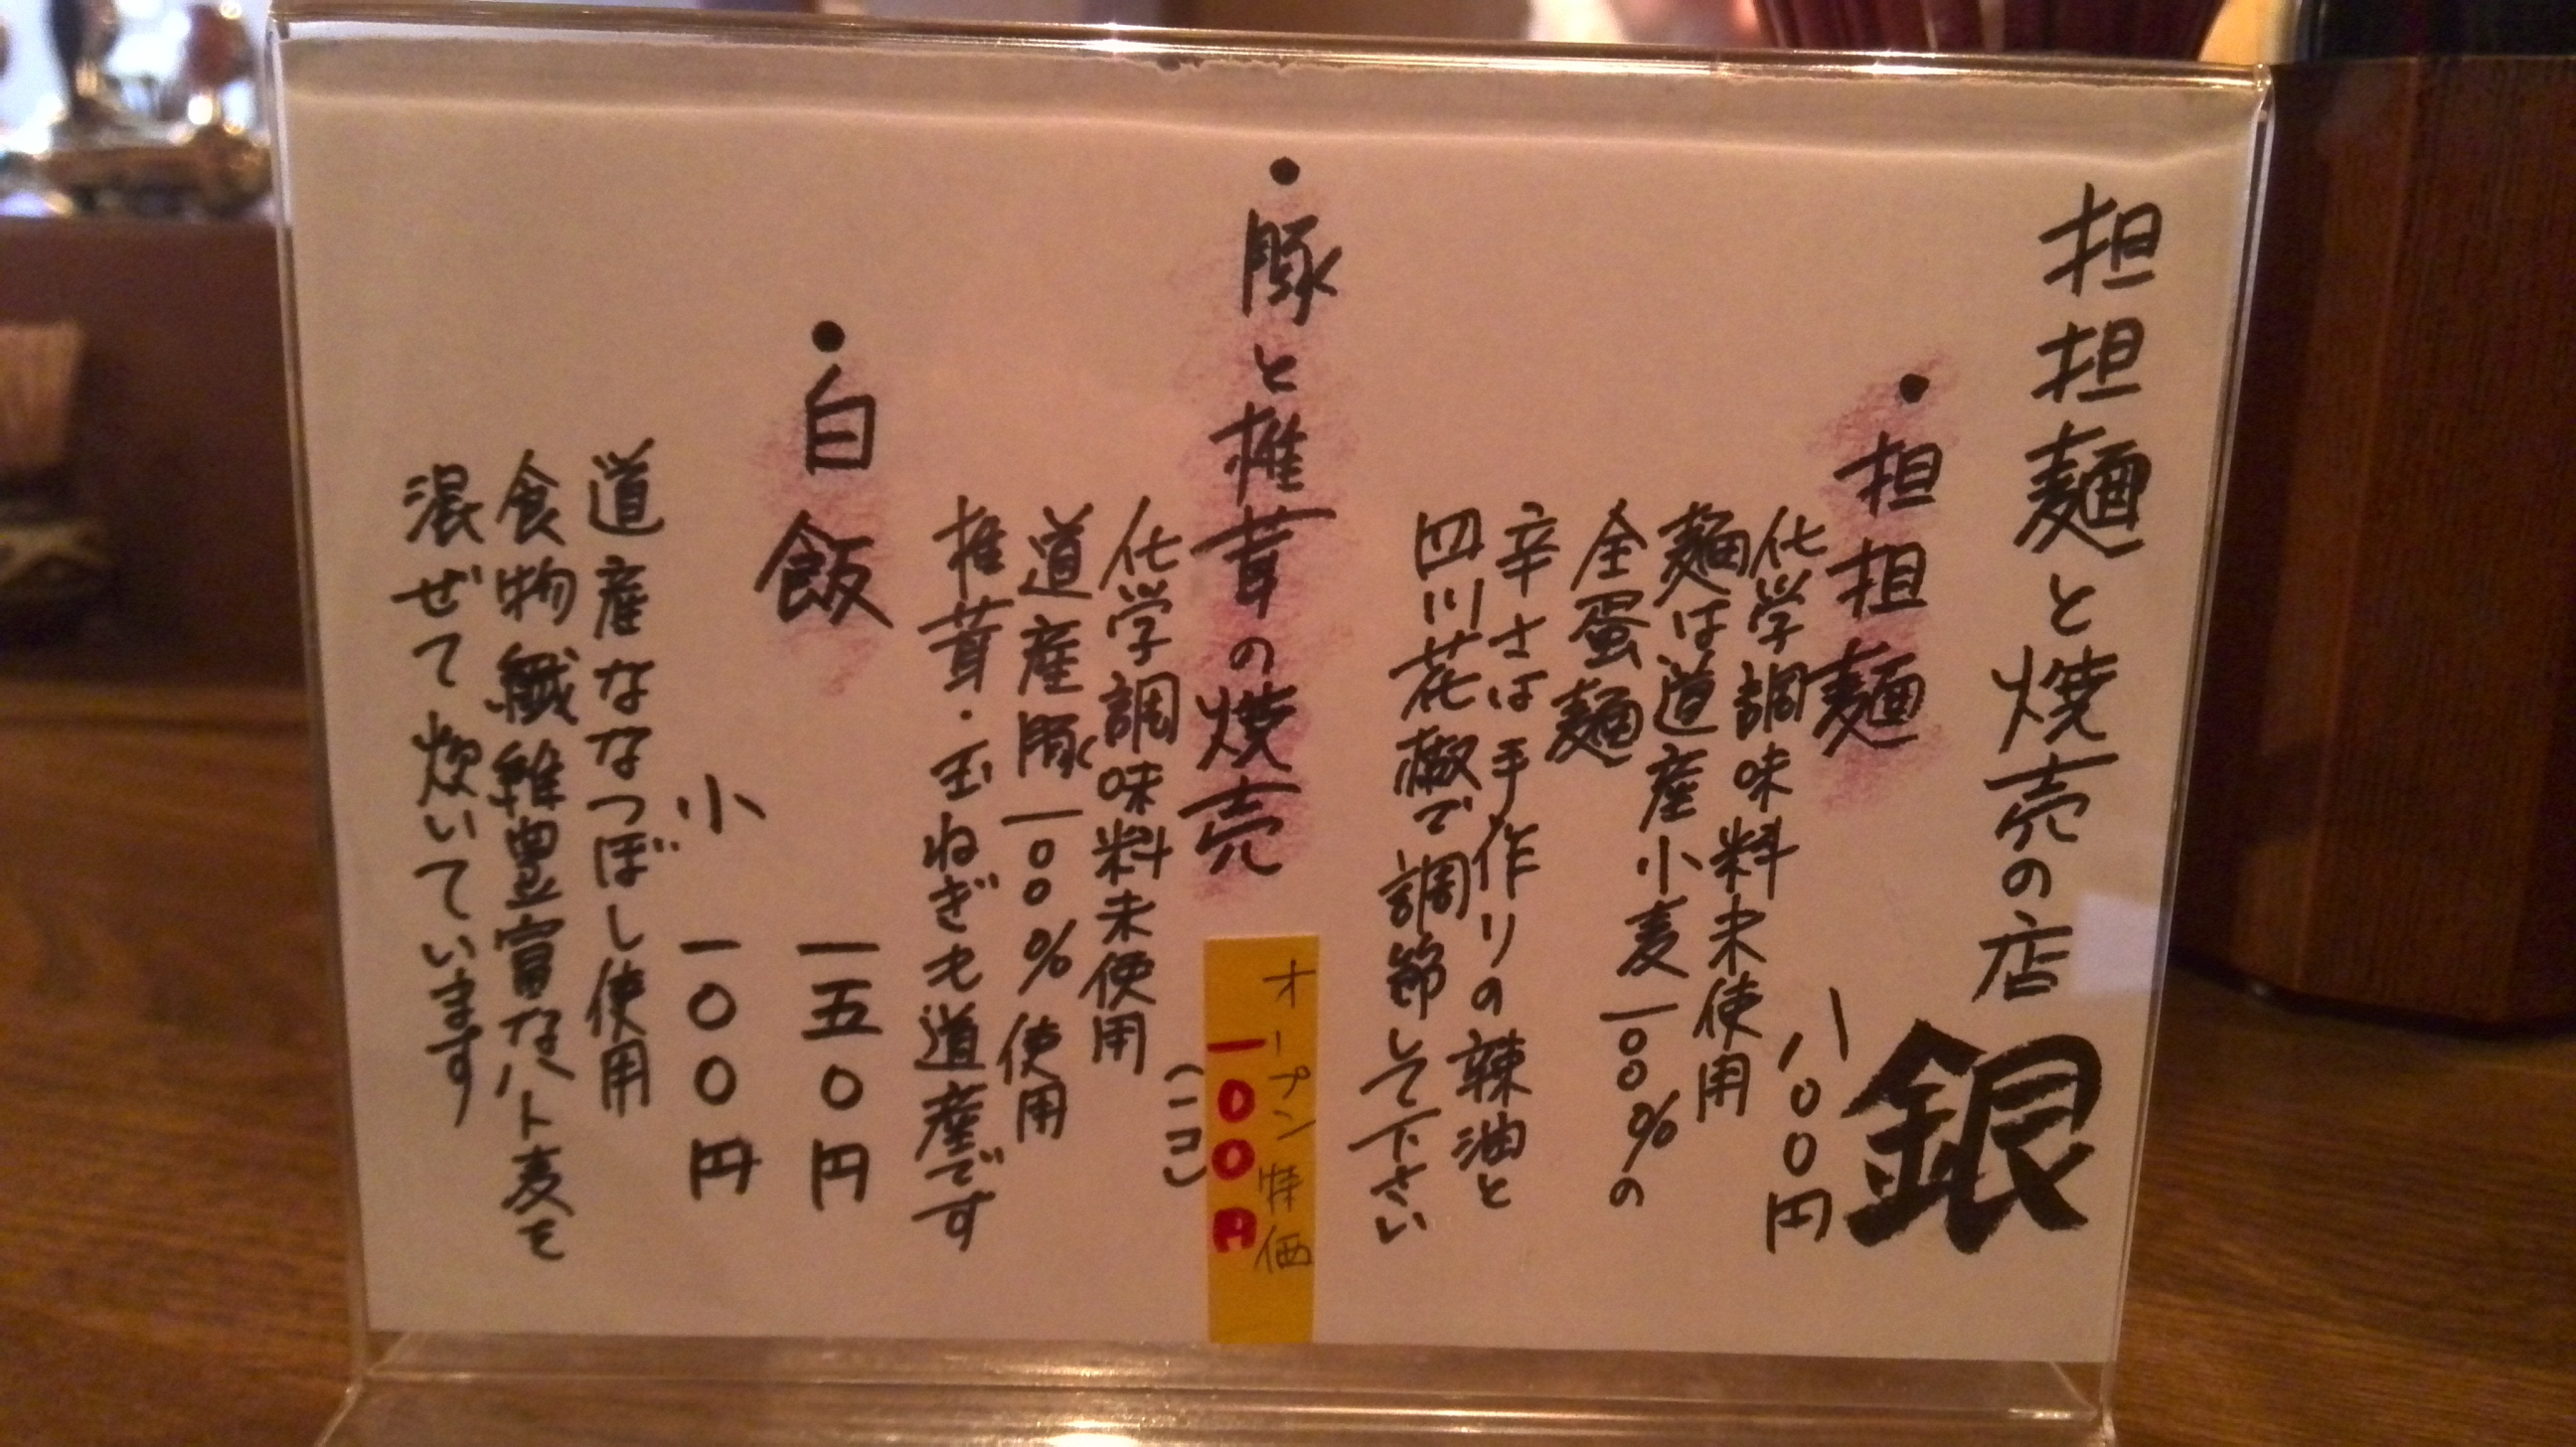 担担麺と焼売の店 銀
・担担麺 八〇〇円
化学調味料未使用
麺は道産小麦一〇〇%の
全蛋麺
辛さは手作りの辣油と
四川花椒で調節して下さい
・豚と椎茸の焼売
オープン特価
一〇〇円
(一コ)
化学調味料未使用
道産豚一〇〇%使用
椎茸・玉ねぎも道産です
・白飯 一五〇円
小 一〇〇円
道産ななつぼし使用
食物繊維豊富なハト麦を
混ぜて炊いています